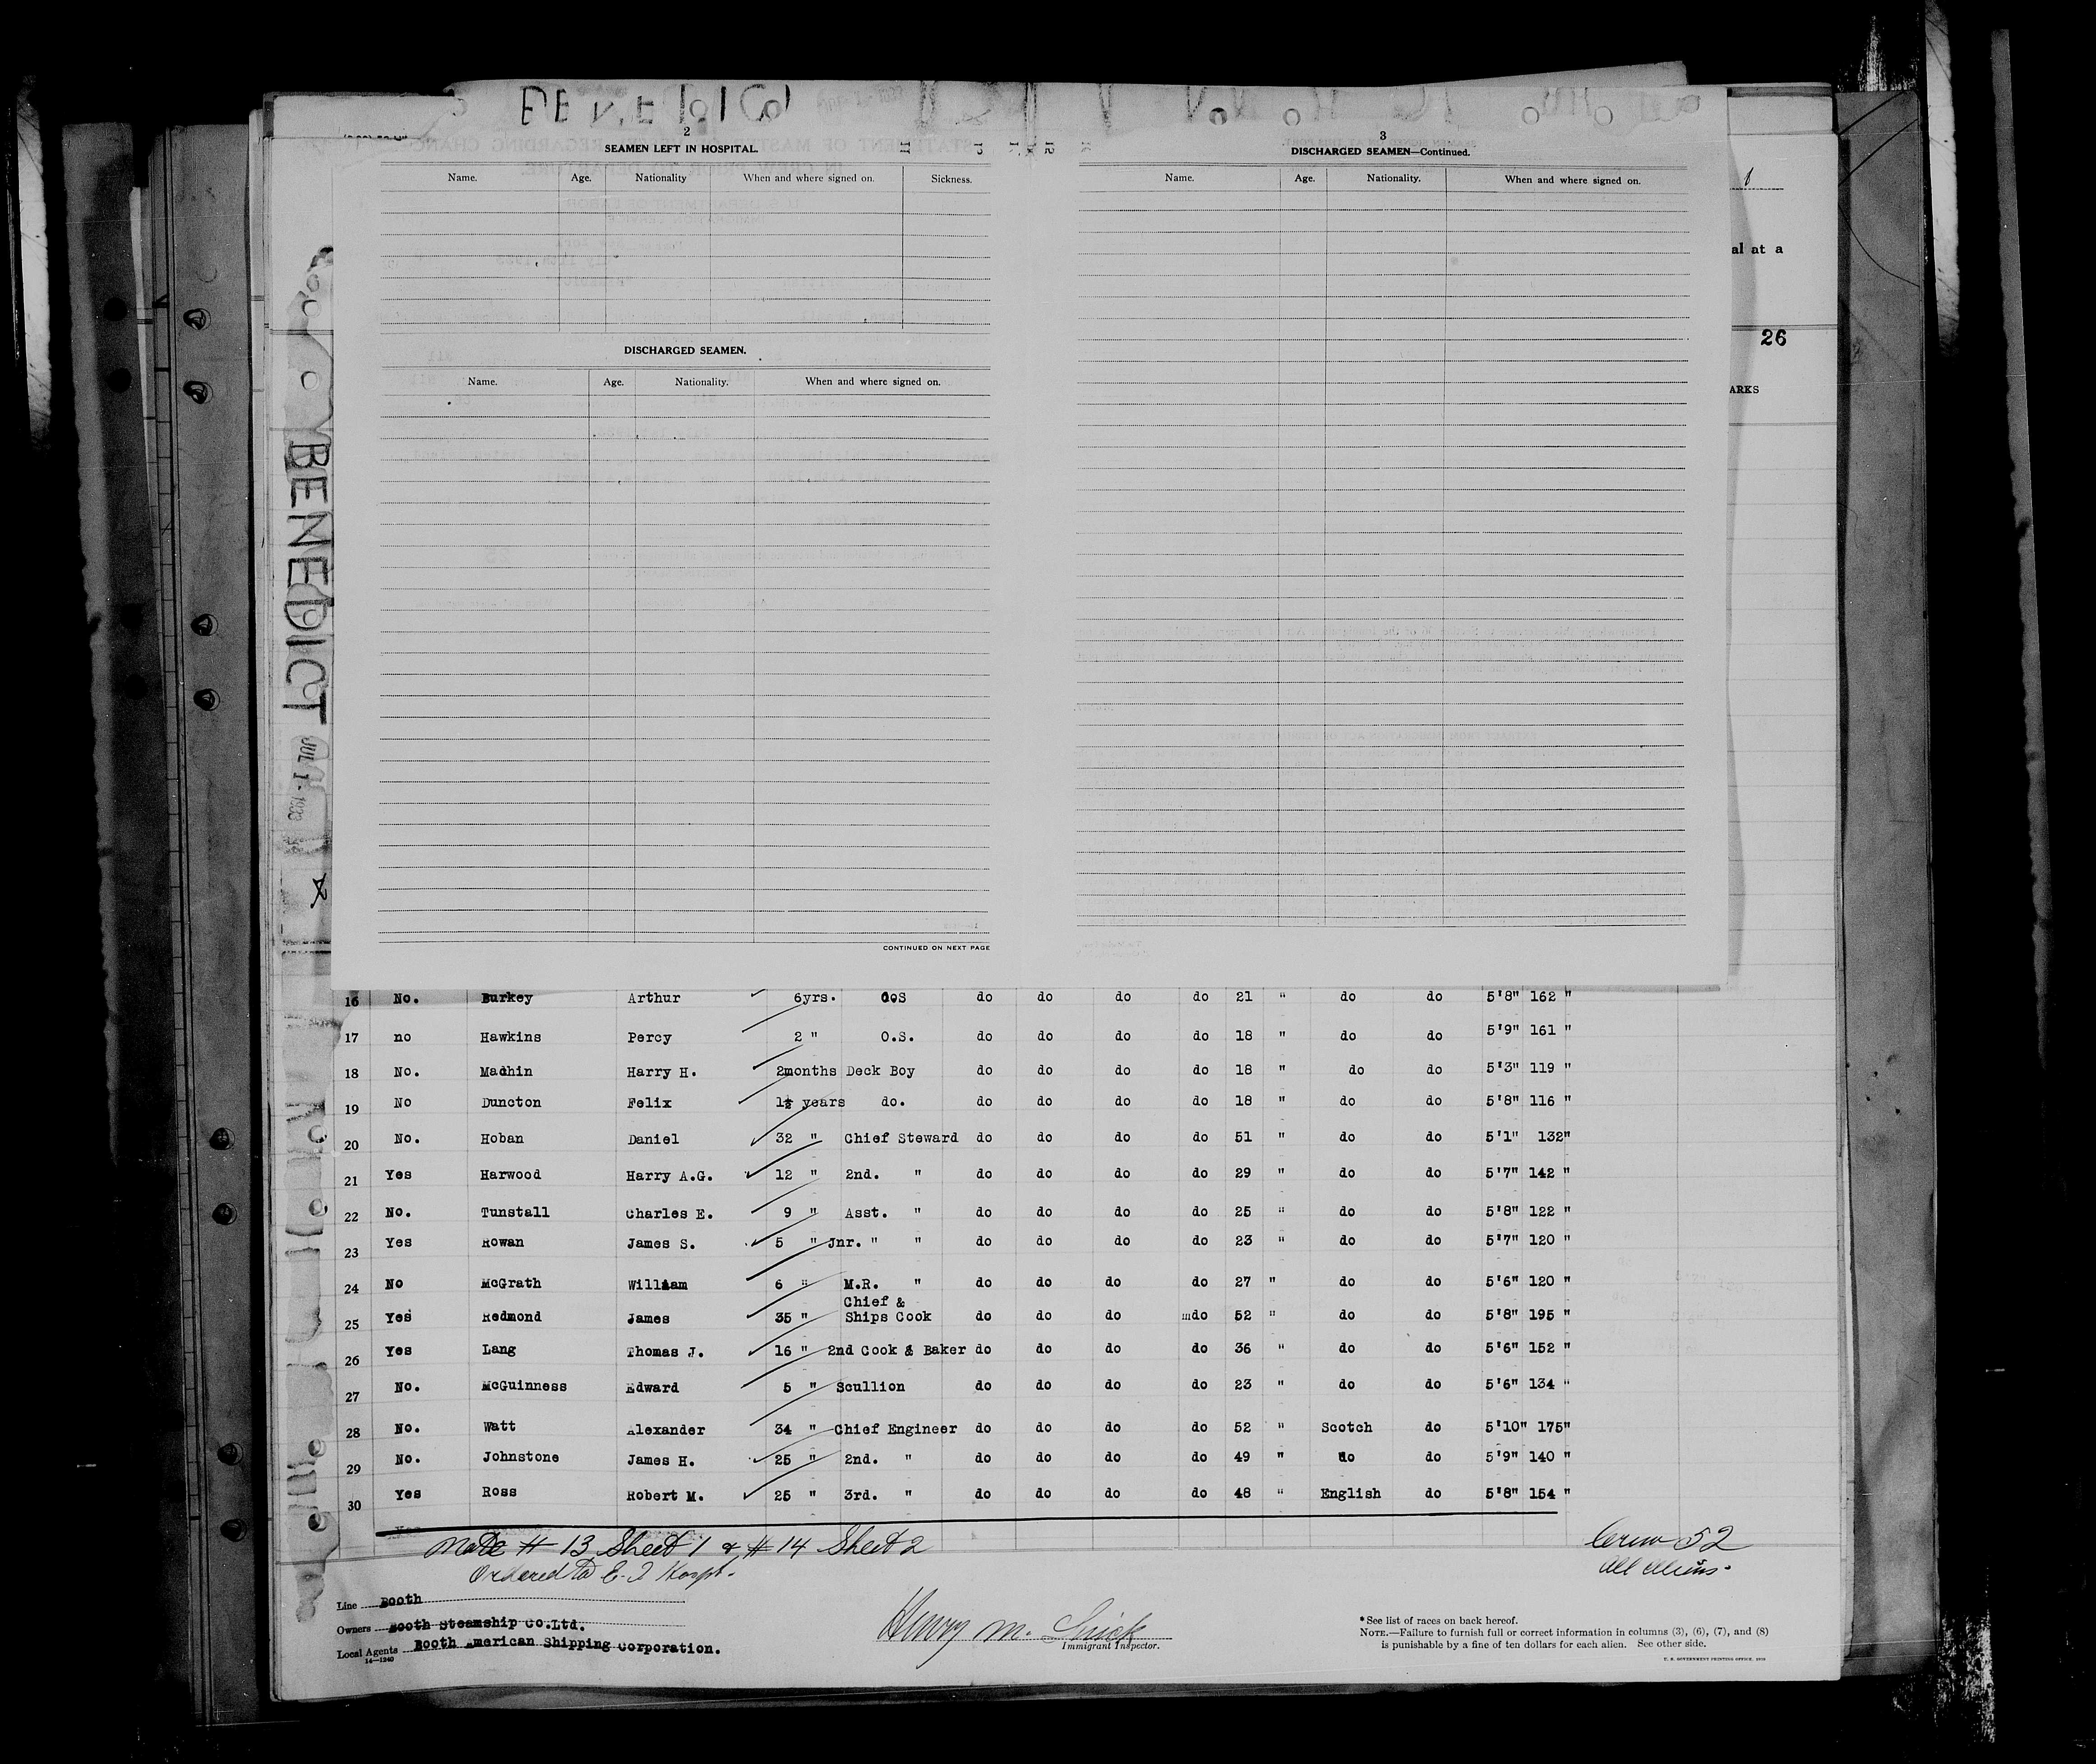 BENEDICT
JUL 1 - 1933
2
SEAMEN LEFT IN HOSPITAL.
Name. Age. Nationality When and where signed on. Sickness.
DISCHARGED SEAMEN.
Name. Age. Nationality. When and where signed on.
CONTINUED ON NEXT PAGE
3
DISCHARGED SEAMEN—Continued.
Name. Age. Nationality. When and where signed on.
al at a
26
ARKS
16 No. Burkey Arthur 6yrs. do do do do 21 " do do 5'8" 162 "
17 no Hawkins Percy 2 " O.S. do do do do 18 " do do 5'9" 161 "
18 No. Madhin Harry H. 2months Deck Boy do do do do 18 " do do 5'3" 119 "
19 No Duncton Felix 1½ years do. do do do do 18 " do do 5'8" 116 "
20 No. Hoban Daniel 32 " Chief Steward do do do do 51 " do do 5'1" 132"
21 Yes Harwood Harry A.G. 12 " 2nd. " do do do do 29 " do do 5'7" 142 "
22 No. Tunstall Charles E. 9 " Asst. " do do do do 25 " do do 5'8" 122 "
23 Yes Rowan James S. 5 " Jnr. " " do do do do 23 " do do 5'7" 120 "
24 No McGrath William 6 " M.R. " do do do do 27 " do do 5'6" 120 "
25 Yes Redmond James 35 " Chief & Ships Cook do do do do 52 " do do 5'8" 195 "
26 Yes Lang Thomas J. 16 " 2nd Cook & Baker do do do do 36 " do do 5'6" 152 "
27 No. McGuinness Edward 5 " Scullion do do do do 23 " do do 5'6" 134 "
28 No. Watt Alexander 34 " Chief Engineer do do do do 52 " Scotch do 5'10" 175"
29 No. Johnstone James H. 25 " 2nd. " do do do do 49 " do do 5'9" 140 "
30 Yes Ross Robert M. 25 " 3rd. " do do do do 48 " English do 5'8" 154 "
Note # 13 Sheet 1 & # 14 Sheet 2
Ordered to E. I Hospt.
Crew 52
All Aliens.
Line Booth
Owners Booth Steamship Co.Ltd.
Local Agents Booth American Shipping Corporation.
14—1240
Henry M.
Immigrant Inspector.
*See list of races on back hereof.
NOTE.—Failure to furnish full or correct information in columns (3), (6), (7), and (8)
is punishable by a fine of ten dollars for each alien. See other side.
U. S. GOVERNMENT PRINTING OFFICE